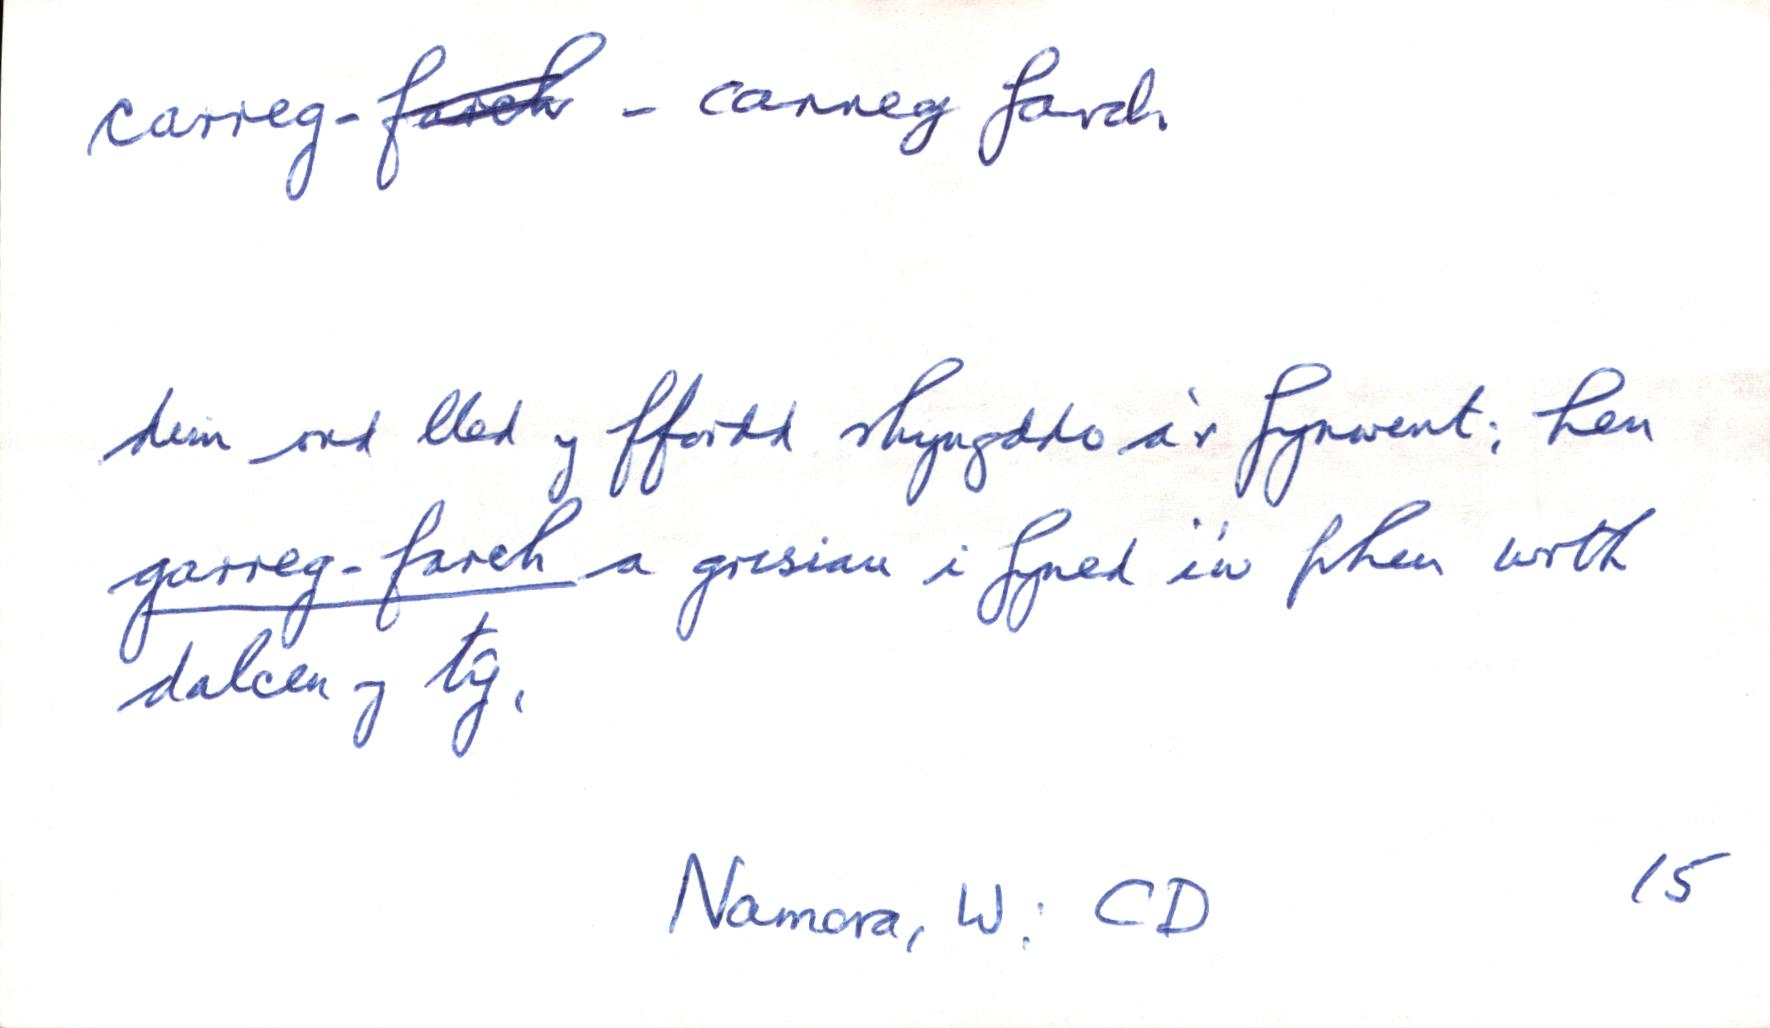 carreg-farch - carreg farch
dim ond lled y ffordd rhyngddo a'r fynwent; hen
garreg-farch a grisiau i fyned i'w phen wrth
dalcen y tŷ.
Namora, W: CD 15